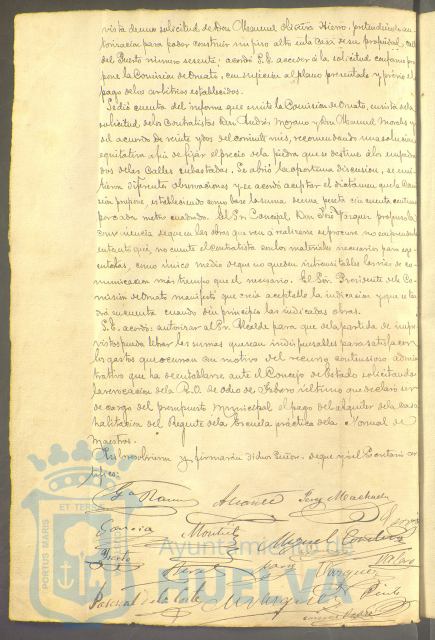 vista de una solicitud de Don Manuel Oliveira Hierro, pretendiendo au-
torización para poder construir un piso alto en la casa de su propiedad, calle
del Puerto número sesenta; acordó S.E. acceder á lo solicitud conforme pro-
pone la Comisión de Ornato, con sugección al plano presentado y previo el
pago de los arbitrios establecidos.
Se dió cuenta del informe que emite la Comisión de Ornato, en vista de la
solicitud de los Contratistas Don Andrés Moyano y Don Manuel Morales y
del acuerdo de veinte y dos del corriente mes, recomendando una solución
equitativa á fin de fijar el precio de la piedra que se destine á los empedra-
dos de las calles subastadas. Se abrió la oportuna discusión, se emi-
tieron diferentes observaciones y se acordó aceptar el dictamen que la Comi-
sión propone, estableciendo como base la suma de una peseta cincuenta céntimos
por cada metro cuadrado. El Sr. Concejal Don José Vazquez propuso la
conveniencia de que en las obras que van á realizarse se procure no emprenderlas
en tanto que no cuente el contratista con los materiales necesarios para eje-
cutarlas, como único medio de que no queden intransitables las vías de co-
municación más tiempo que el necesario. El Sor. Presidente de la Co-
misión de Ornato manifestó que creía aceptable la indicación y que se ten-
drá en cuenta cuando den principio las indicadas obras.
S.E. acordó: autorizar al Sr. Alcalde para que de la partida de impre-
vistos pueda librar las sumas que sean indispensables para satisfacer
los gastos que ocurran con motivo del recurso contencioso admi-
nistrativo que ha de entablarse ante el Consejo de Estado solicitando
la revocación de la R.O. de ocho de Febrero último que declara ser
de cargo del presupuesto municipal el pago del alquiler de la casa
habitación del Regente de la Escuela práctica de la Normal de
Maestros.
y firmarán dichos Señores, de que yo el Secretario cer-
tifico:
Garcia Ramos Alvarez Jorge Machuca
Garcia Montiel Miguel Cordero
Vazquez
Pascual de la Calle Pinto
Ayuntamiento de
HUELVA
PORTUS MARIS ET TERRAE